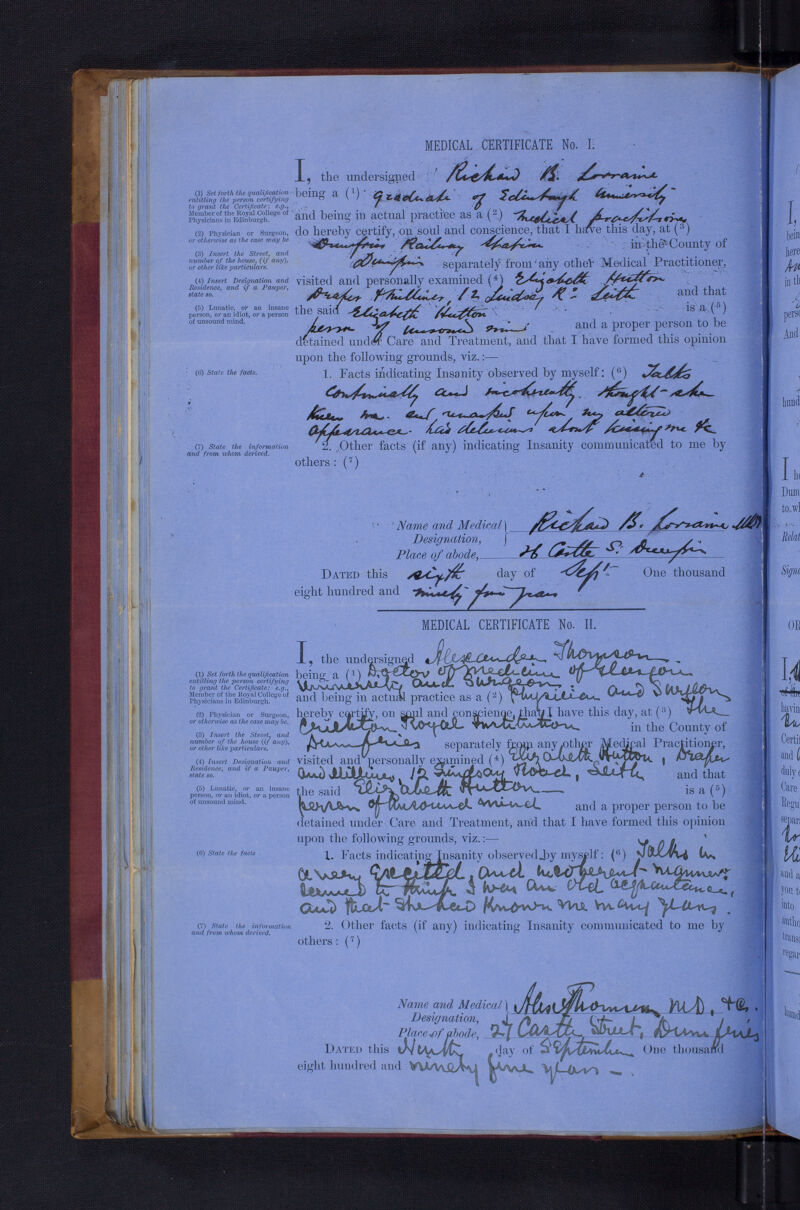 MEDICAL CERTIFICATE No. I.
I, the undersigned Richard B. Lorraine
(1) Set forth the qualification entitling the person certifying to grant the Certificate; e.g., Member of the Royal College of Physicians in Edinburgh.
being a (1) graduate of Edinburgh University
and being in actual practice as a (2) medical practitioner
(2) Physician or Surgeon, or otherwise as the case may be
do hereby certify, on soul and conscience, that I have this day, at (3)
Dumfries Railway Station in the County of
(3) Insert the Street, and number of the house, (if any), or other like particulars.
Dumfries separately from any other Medical Practitioner,
(4) Insert Designation and Residence, and if a Pauper, state so.
visited and personally examined (4) Elizabeth Hutton
Draper & Milliner, 12 Lindsay Rd. Leith and that
(5) Lunatic, or an insane person, or an idiot, or a person of unsound mind.
the said Elizabeth Hutton is a (5)
person of unsound mind and a proper person to be
detained under Care and Treatment, and that I have formed this opinion
upon the following grounds, viz.:—
(6) State the facts.
1. Facts indicating Insanity observed by myself: (6) Talks
continually and incoherently. thought she
knew me. and remarked upon my altered
appearance. has delusions about kissing me &c
(7) State the information and from whom derived.
2. Other facts (if any) indicating Insanity communicated to me by
others: (7)
Name and Medical Designation, Richard B. Lorraine MD
Place of abode, 26 Castle St. Dumfries
DATED this sixth day of Sept. One thousand
eight hundred and ninety five years
MEDICAL CERTIFICATE No. II.
I, the undersigned Alexander Thomson
(1) Set forth the qualification entitling the person certifying to grant the Certificate: e.g., Member of the Royal College of Physicians in Edinburgh.
being a (1) Doctor of Medicine of Glasgow
University and Surgeon
and being in actual practice as a (2) Physician and Surgeon
(2) Physician or Surgeon, or otherwise as the case may be.
hereby certify, on soul and conscience, that I have this day, at (3) The
Crichton Royal Institution in the County of
(3) Insert the Street, and number of the house (if any), or other like particulars.
Dumfries separately from any other Medical Practitioner,
(4) Insert Designation and Residence, and if a Pauper, state so.
visited and personally examined (4) Elizabeth Hutton, Draper
and Milliner, 12 Lindsay Road, Leith and that
(5) Lunatic, or an insane person, or an idiot, or a person of unsound mind.
the said Elizabeth Hutton is a (5)
person of unsound mind and a proper person to be
detained under Care and Treatment, and that I have formed this opinion
upon the following grounds, viz.:—
(6) State the facts
1. Facts indicating Insanity observed by myself: (6) Talks in
a very excited, and incoherent manner,
seemed to think I was an old acquaintance,
and that she had known me many years.
(7) State the information and from whom derived.
2. Other facts (if any) indicating Insanity communicated to me by
others: (7)
Name and Medical Designation, Alex Thomson M.D, &c.
Place of abode, 27 Castle Street, Dumfries
DATED this Ninth day of September One thousand
eight hundred and ninety five years —.